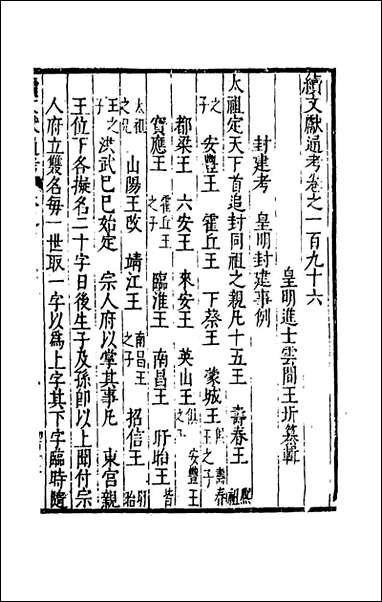 續文獻通考卷之一百九十六
皇明進士雲間王圻纂輯
封建考 皇明封建事例
太祖定天下首追封同祖之親凡十五王 壽春王熙祖
之子 安豐王 霍丘王 下蔡王 蒙城王俱壽春王之子
郡梁王 六安王 來安王 英山王俱安豐王之子
寶應王霍丘王之子 臨淮王 南昌王 盱眙王皆
太祖之兄 山陽王改 靖江王南昌王之子 招信王盱眙
王之子 洪武己巳始定 宗人府以掌其事凡 東宮親
王位下各擬名二十字日後生子及孫即以上聞付宗
人府立雙名每一世取一字以爲上字其下字臨時隨